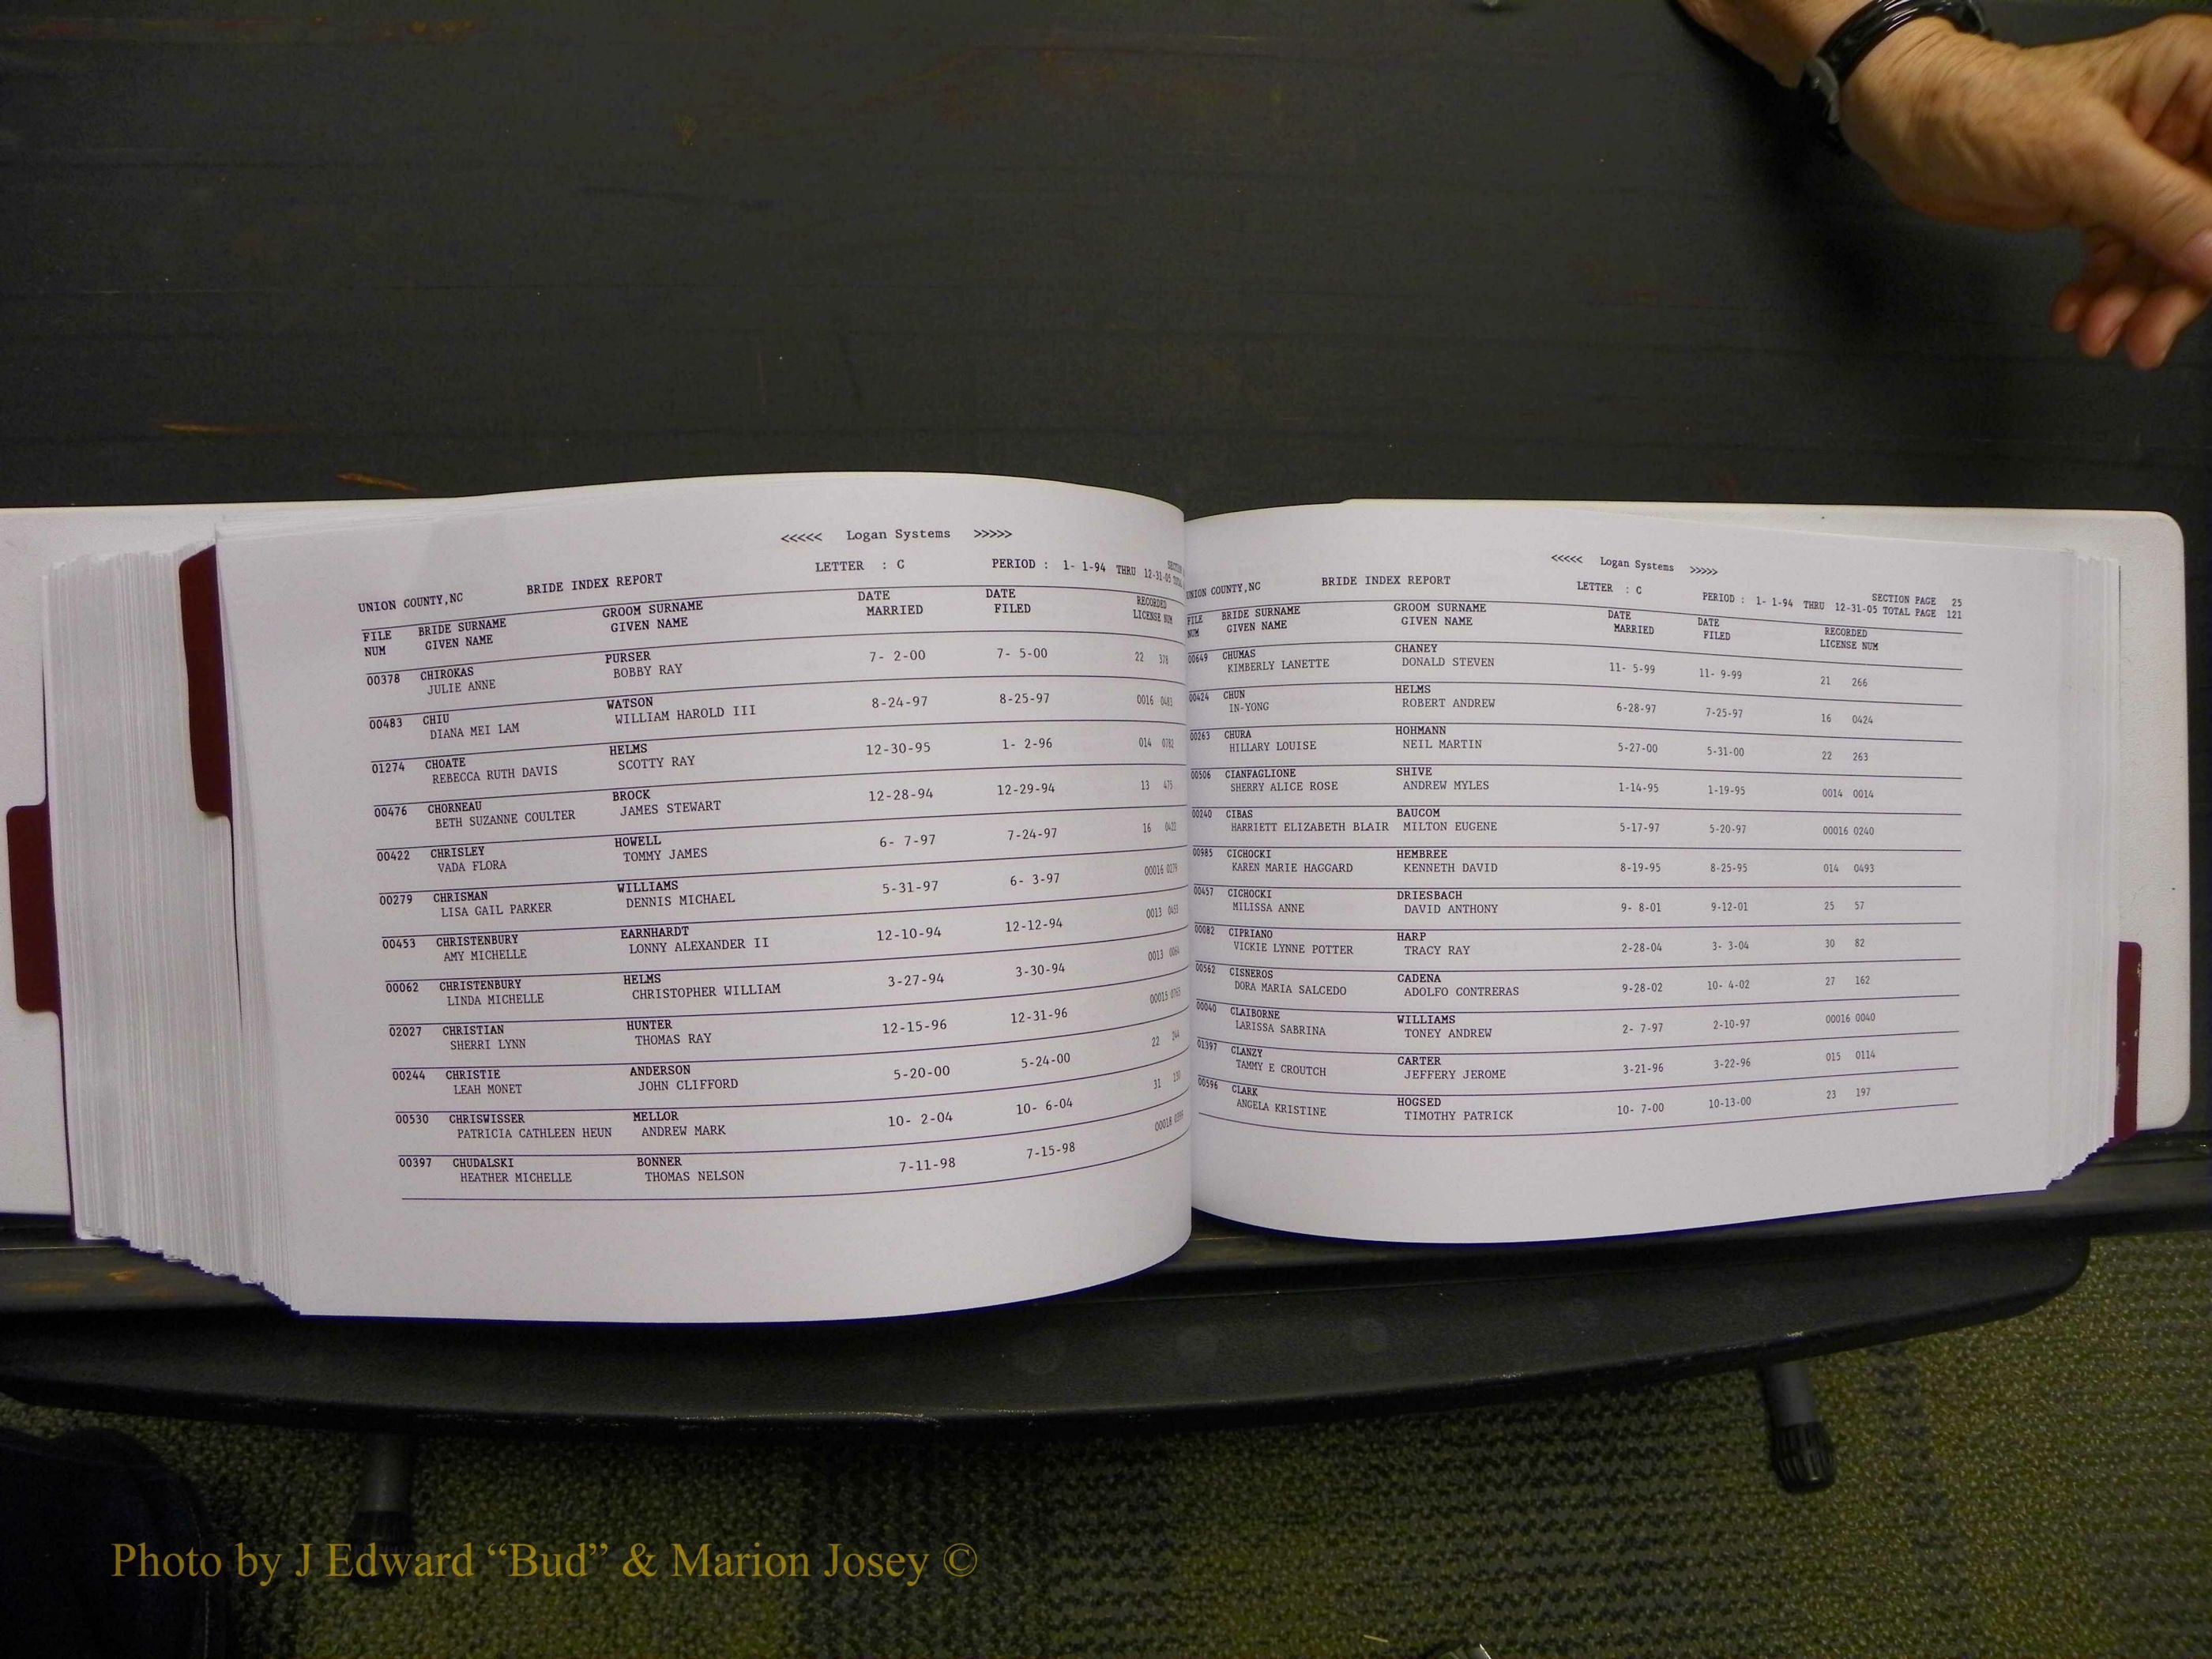 <<<<< Logan Systems >>>>>
UNION COUNTY,NC BRIDE INDEX REPORT LETTER : C PERIOD : 1- 1-94 THRU 12-31-05
FILE BRIDE SURNAME GROOM SURNAME DATE DATE RECORDED
NUM GIVEN NAME GIVEN NAME MARRIED FILED LICENSE NUM
00378 CHIROKAS PURSER 7- 2-00 7- 5-00 22 378
JULIE ANNE BOBBY RAY
00483 CHIU WATSON 8-24-97 8-25-97 0016 0483
DIANA MEI LAM WILLIAM HAROLD III
01274 CHOATE HELMS 12-30-95 1- 2-96 014 0782
REBECCA RUTH DAVIS SCOTTY RAY
00476 CHORNEAU BROCK 12-28-94 12-29-94 13 475
BETH SUZANNE COULTER JAMES STEWART
00422 CHRISLEY HOWELL 6- 7-97 7-24-97 16 0422
VADA FLORA TOMMY JAMES
00279 CHRISMAN WILLIAMS 5-31-97 6- 3-97 00016 0279
LISA GAIL PARKER DENNIS MICHAEL
00453 CHRISTENBURY EARNHARDT 12-10-94 12-12-94 0013 0453
AMY MICHELLE LONNY ALEXANDER II
00062 CHRISTENBURY HELMS 3-27-94 3-30-94 0013
LINDA MICHELLE CHRISTOPHER WILLIAM
02027 CHRISTIAN HUNTER 12-15-96 12-31-96 00015
SHERRI LYNN THOMAS RAY
00244 CHRISTIE ANDERSON 5-20-00 5-24-00 22 244
LEAH MONET JOHN CLIFFORD
00530 CHRISWISSER MELLOR 10- 2-04 10- 6-04 31
PATRICIA CATHLEEN HEUN ANDREW MARK
00397 CHUDALSKI BONNER 7-11-98 7-15-98 00018
HEATHER MICHELLE THOMAS NELSON
<<<<< Logan Systems >>>>>
UNION COUNTY,NC BRIDE INDEX REPORT LETTER : C SECTION PAGE 25
PERIOD : 1- 1-94 THRU 12-31-05 TOTAL PAGE 121
FILE BRIDE SURNAME GROOM SURNAME DATE DATE RECORDED
NUM GIVEN NAME GIVEN NAME MARRIED FILED LICENSE NUM
00649 CHUMAS CHANEY 11- 5-99 11- 9-99 21 266
KIMBERLY LANETTE DONALD STEVEN
00424 CHUN HELMS 6-28-97 7-25-97 16 0424
IN-YONG ROBERT ANDREW
00263 CHURA HOHMANN 5-27-00 5-31-00 22 263
HILLARY LOUISE NEIL MARTIN
00506 CIANFAGLIONE SHIVE 1-14-95 1-19-95 0014 0014
SHERRY ALICE ROSE ANDREW MYLES
00240 CIBAS BAUCOM 5-17-97 5-20-97 00016 0240
HARRIETT ELIZABETH BLAIR MILTON EUGENE
00985 CICHOCKI HEMBREE 8-19-95 8-25-95 014 0493
KAREN MARIE HAGGARD KENNETH DAVID
00457 CICHOCKI DRIESBACH 9- 8-01 9-12-01 25 57
MILISSA ANNE DAVID ANTHONY
00082 CIPRIANO HARP 2-28-04 3- 3-04 30 82
VICKIE LYNNE POTTER TRACY RAY
00562 CISNEROS CADENA 9-28-02 10- 4-02 27 162
DORA MARIA SALCEDO ADOLFO CONTRERAS
00040 CLAIBORNE WILLIAMS 2- 7-97 2-10-97 00016 0040
LARISSA SABRINA TONEY ANDREW
01397 CLANZY CARTER 3-21-96 3-22-96 015 0114
TAMMY E CROUTCH JEFFERY JEROME
00596 CLARK HOGSED 10- 7-00 10-13-00 23 197
ANGELA KRISTINE TIMOTHY PATRICK
Photo by J Edward “Bud” & Marion Josey ©